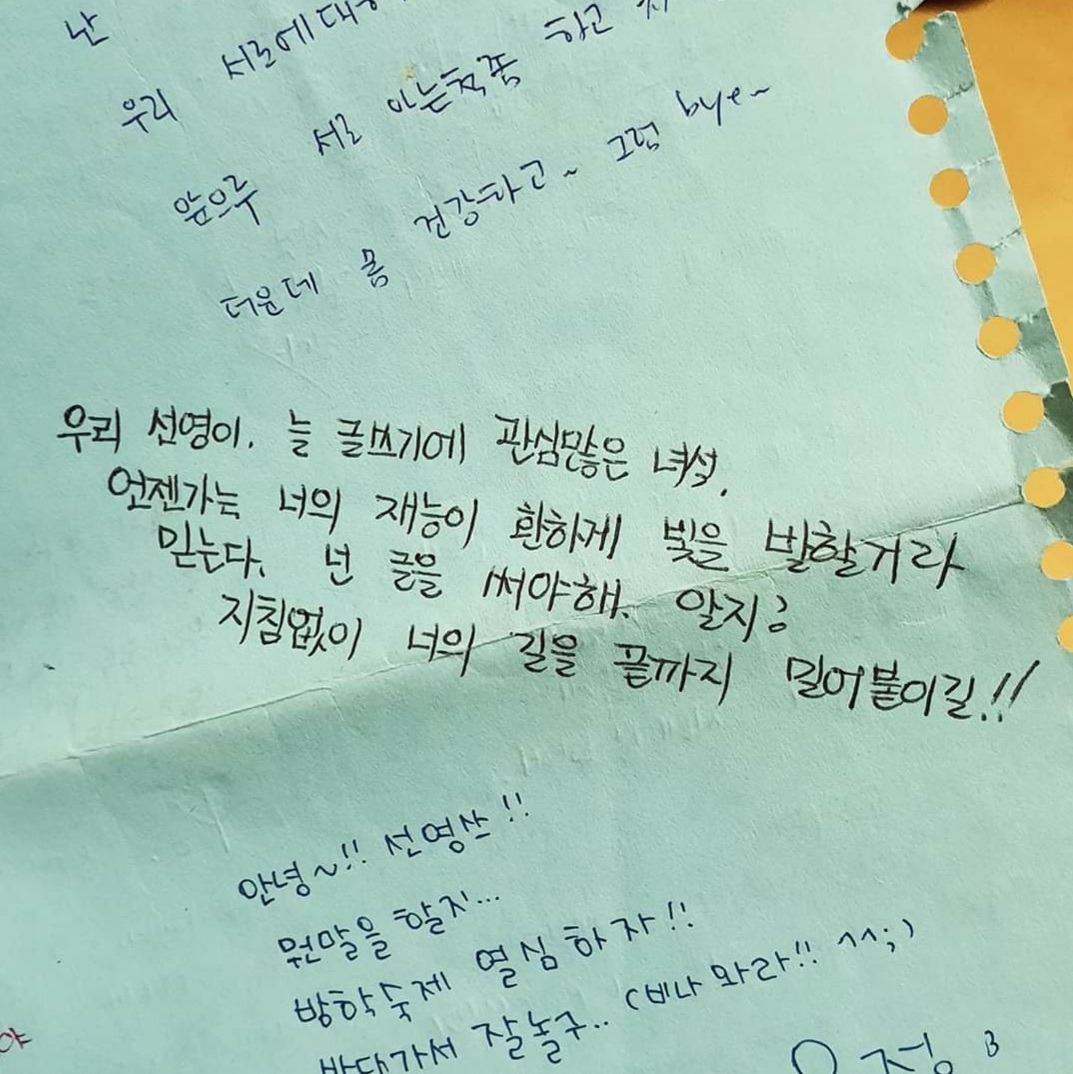 난
우리 서로에 대
앞으루 서로 아는척좀 하고
더운데 몸 건강하고~ 그럼 bye~
우리 선영이. 늘 글쓰기에 관심많은 녀석.
언젠가는 너의 재능이 환하게 빛을 발할거라
믿는다. 넌 글을 써야해. 알지?
지침없이 너의 길을 끝까지 밀어붙이길!!
안녕~!! 선영쓰!!
뭔말을 할지...
방학숙제 열심하자!!
바다가서 잘놀구.. (비나 와라!! ^^;)
유정
야